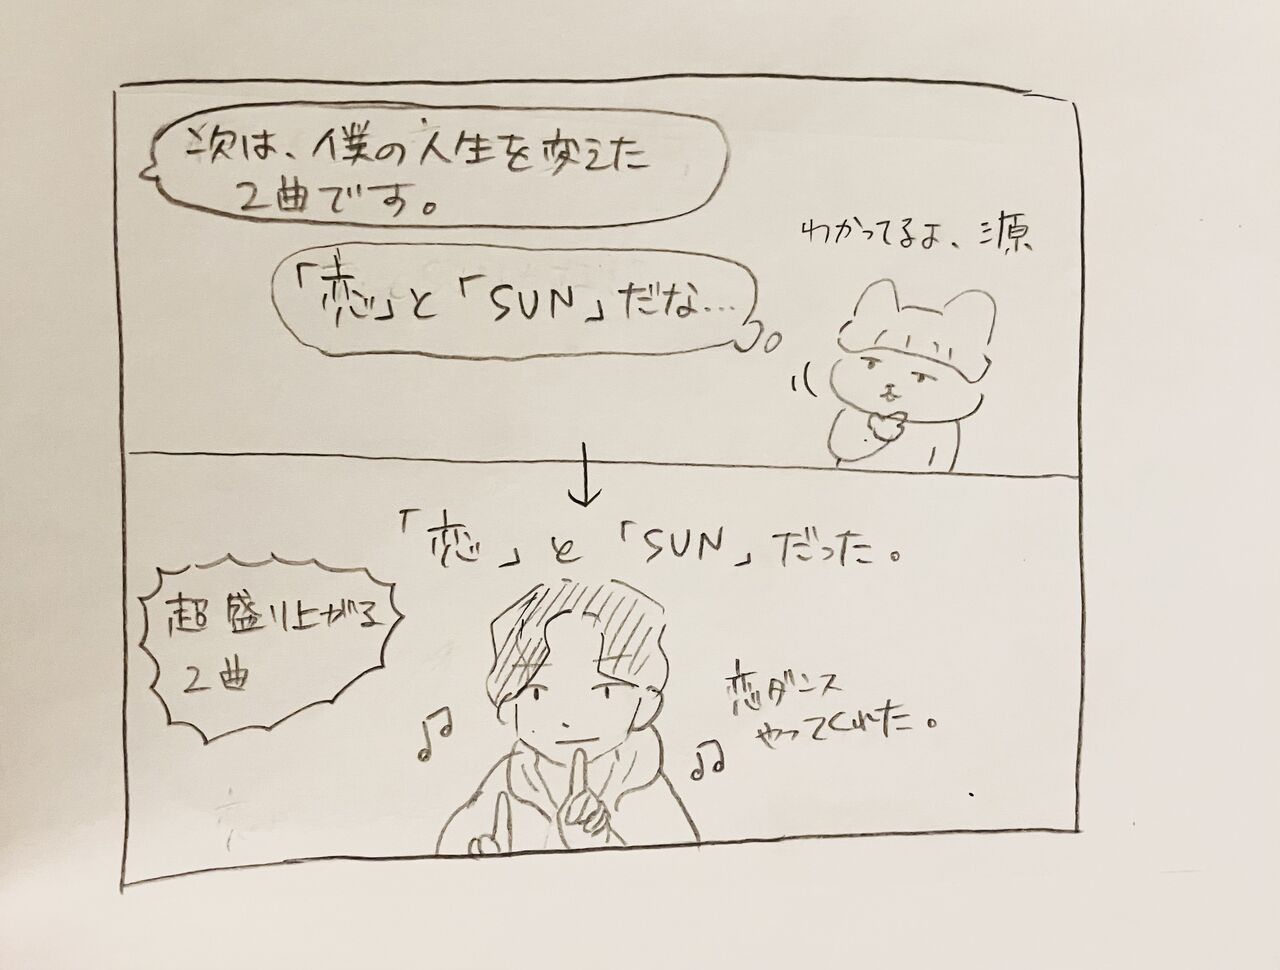 次は、僕の人生を変えた
2曲です。
わかってるよ、源
「恋」と「SUN」だな…
「恋」と「SUN」だった。
超盛り上がる
2曲
恋ダンス
やってくれた。